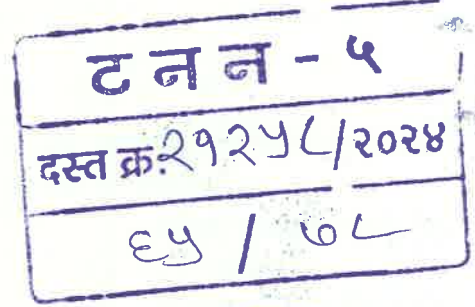 ट न न - ५
दस्त क्र. २१२५८/२०२४
६५ / ७८